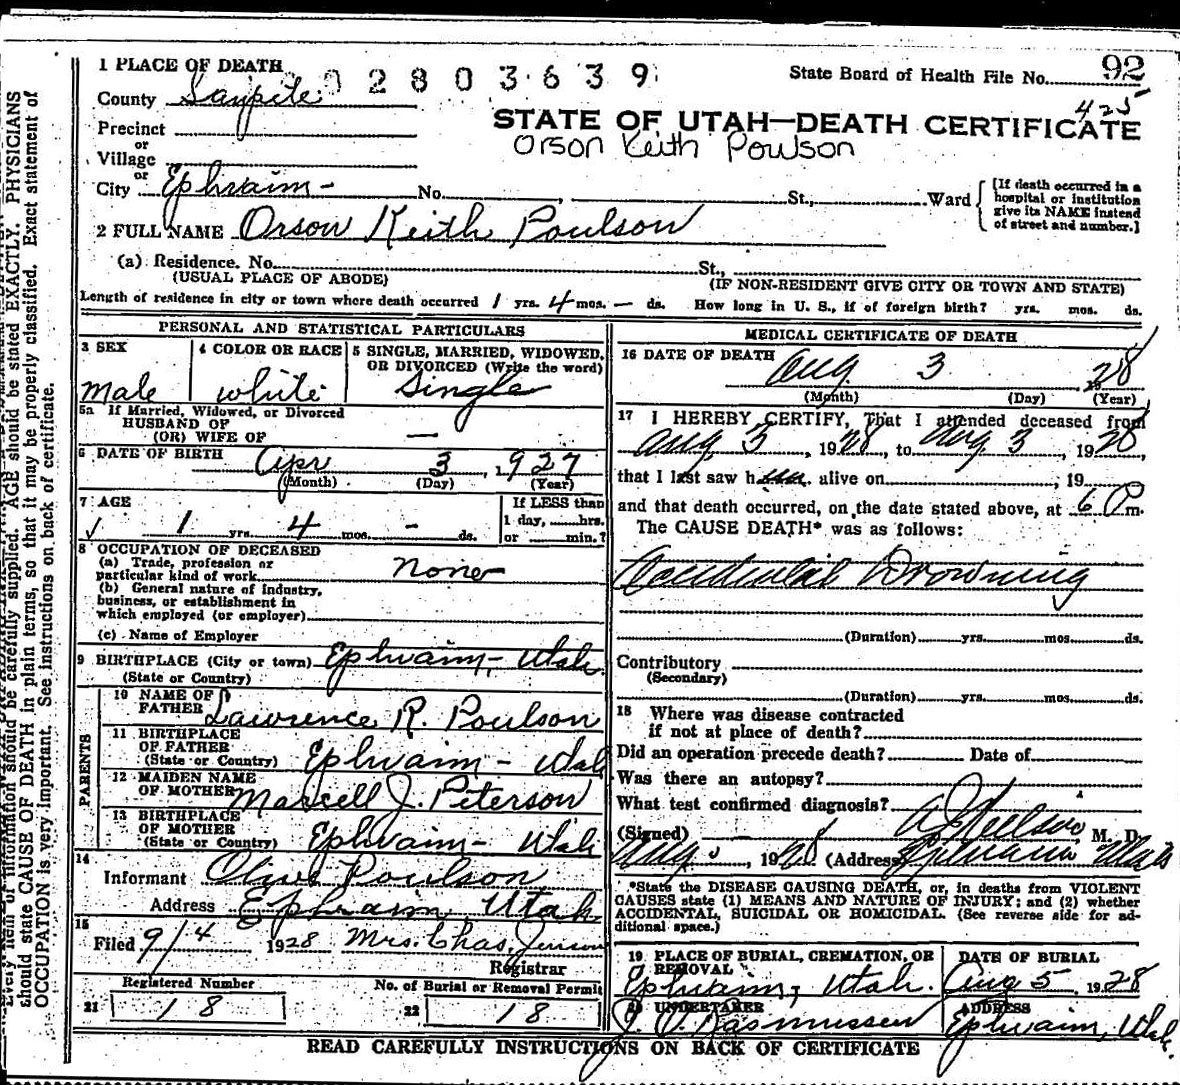 1 PLACE OF DEATH
0 2 8 0 3 6 3 9
State Board of Health File No. 92
425
County Sanpete
STATE OF UTAH—DEATH CERTIFICATE
Orson Keith Poulson
Precinct
or
Village
or
City Ephraim - No. , St., Ward
[If death occurred in a
hospital or institution
give its NAME instead
of street and number.]
2 FULL NAME Orson Keith Poulson
(a) Residence. No. St.,
(USUAL PLACE OF ABODE) (IF NON-RESIDENT GIVE CITY OR TOWN AND STATE)
Length of residence in city or town where death occurred 1 yrs. 4 mos. — ds. How long in U. S., if of foreign birth? yrs. mos. ds.
PERSONAL AND STATISTICAL PARTICULARS
3 SEX
male
4 COLOR OR RACE
white
5 SINGLE, MARRIED, WIDOWED,
OR DIVORCED (Write the word)
Single
5a If Married, Widowed, or Divorced
HUSBAND OF
(OR) WIFE OF —
6 DATE OF BIRTH Apr 3, 1927
(Month) (Day) (Year)
7 AGE
1 yrs. 4 mos. - ds.
If LESS than
1 day, hrs.
or min.?
8 OCCUPATION OF DECEASED
(a) Trade, profession or
particular kind of work none
(b) General nature of industry,
business, or establishment in
which employed (or employer)
(c) Name of Employer
9 BIRTHPLACE (City or town) Ephraim - Utah
(State or Country)
PARENTS
10 NAME OF
FATHER Lawrence R. Poulson
11 BIRTHPLACE
OF FATHER
(State or Country) Ephraim - Utah
12 MAIDEN NAME
OF MOTHER Maxcell J. Peterson
13 BIRTHPLACE
OF MOTHER
(State or Country) Ephraim - Utah
14
Informant Olive Poulson
Address Ephraim, Utah
15
Filed 9/4 1928 Mrs. Chas. Jenson
Registrar
Registered Number
21 18
No. of Burial or Removal Permit
22 18
MEDICAL CERTIFICATE OF DEATH
16 DATE OF DEATH Aug. 3 28
(Month) (Day) (Year)
17 I HEREBY CERTIFY, That I attended deceased from
Aug 3, 1928, to Aug. 3, 1928,
that I last saw h alive on , 19
and that death occurred, on the date stated above, at 6 P m.
The CAUSE DEATH* was as follows:
Accidental Drowning
(Duration) yrs. mos. ds.
Contributory
(Secondary)
(Duration) yrs. mos. ds.
18 Where was disease contracted
if not at place of death?
Did an operation precede death? Date of
Was there an autopsy?
What test confirmed diagnosis?
(Signed) Nielson, M. D.
Aug , 1928 (Address) Ephraim Utah
*State the DISEASE CAUSING DEATH, or, in deaths from VIOLENT
CAUSES state (1) MEANS AND NATURE OF INJURY; and (2) whether
ACCIDENTAL, SUICIDAL OR HOMICIDAL. (See reverse side for ad-
ditional space.)
19 PLACE OF BURIAL, CREMATION, OR
REMOVAL
Ephraim, Utah.
DATE OF BURIAL
Aug 5, 1928
20 UNDERTAKER
Rasmussen
ADDRESS
Ephraim, Utah.
READ CAREFULLY INSTRUCTIONS ON BACK OF CERTIFICATE
Every item of information should be carefully supplied. AGE should be stated EXACTLY. PHYSICIANS
should state CAUSE OF DEATH in plain terms, so that it may be properly classified. Exact statement of
OCCUPATION is very important. See instructions on back of certificate.